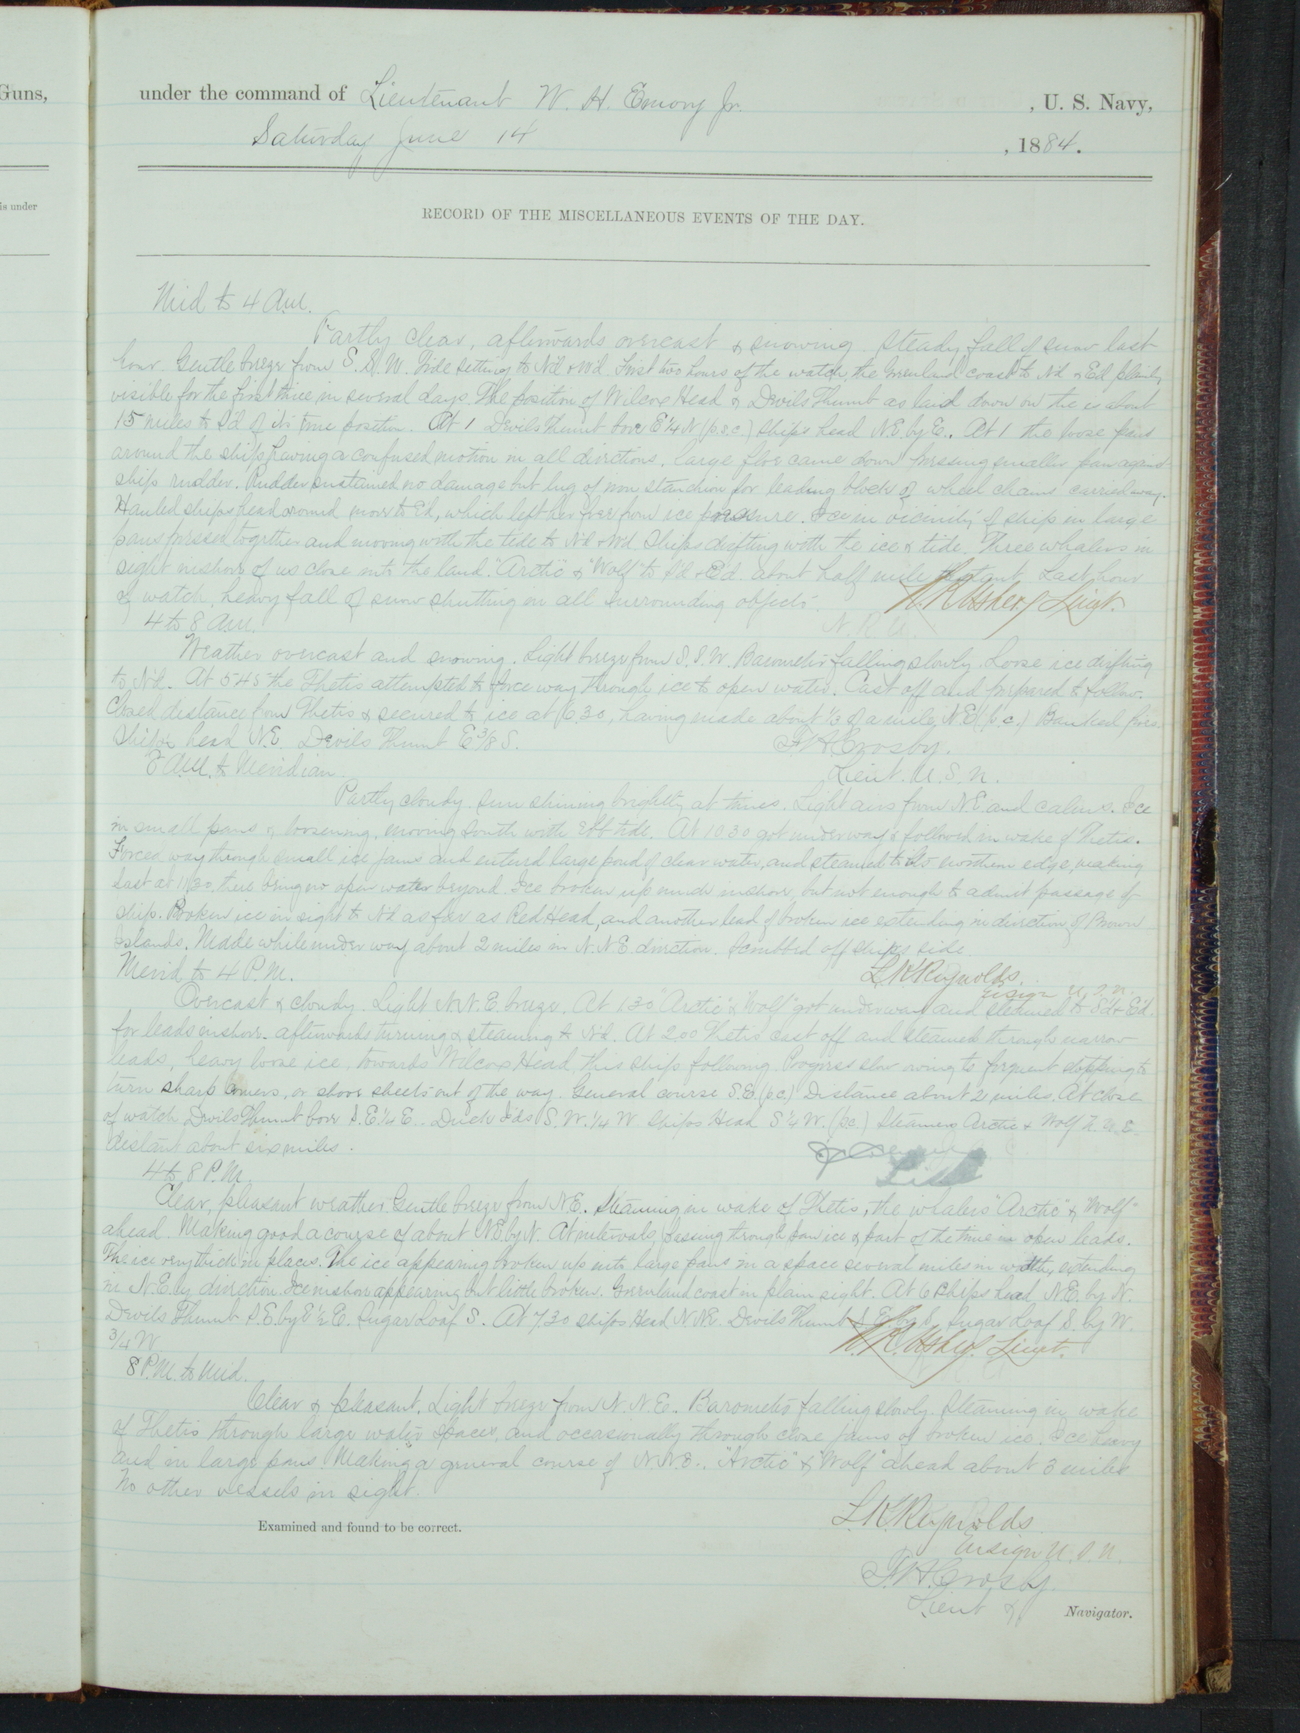 Guns,
is under
under the command of Lieutenant W. H. Emory Jr. , U. S. Navy,
Saturday June 14 , 1884.
RECORD OF THE MISCELLANEOUS EVENTS OF THE DAY.
Mid to 4 A.M.
Partly clear, afterwards overcast & snowing. Steady fall of snow last
hour. Gentle breeze from S.S.W. Tide setting to N'd & W'd. First two hours of the watch, the Greenland coast to N'd & E'd plainly
visible for the first time in several days. The position of Wilcox Head & Devils Thumb as laid down on the is about
15 miles to S'd of its true position. At 1 Devils Thumb bore E¼N (p.s.c.) Ships head N.E. by E. At 1 the loose pans
around the ship having a confused motion in all directions, large floe came down pressing smaller pan against
ships rudder. Rudder sustained no damage but lug of iron stanchion for leading block of wheel chains carried away.
Hauled ships head around more to E'd, which left her free from ice pressure. Ice in vicinity of ship in large
pans pressed together and moving with the tide to N'd & W'd. Ships drifting with the ice & tide. Three whalers in
sight inshore of us close into the land. "Arctic" & "Wolf" to S'd & E'd about half mile distant. Last hour
of watch, heavy fall of snow shutting in all surrounding objects.
N. R. Usher Lieut.
N. R. U.
4 to 8 A.M.
Weather overcast and snowing. Light breeze from S.S.W. Barometer falling slowly. Loose ice drifting
to N'd. At 5 45 the Thetis attempted to force way through ice to open water. Cast off and prepared to follow.
Closed distance from Thetis & secured to ice at 6.30, having made about ⅓ of a mile, N.E. (p.c.) Banked fires
Ships head N.E. Devils Thumb E ⅜ S.
F. H. Crosby.
Lieut. U. S. N.
8 A.M. to Meridian.
Partly cloudy. Sun shining brightly at times. Light airs from N.E. and calms. Ice
in small pans & loosening, moving South with ebb tide. At 10 30 got underway & followed in wake of Thetis.
Forced way through small ice pans and entered large pond of clear water, and steamed to its northern edge, making
fast at 11 30, there being no open water beyond. Ice broken up much inshore, but not enough to admit passage of
ship. Broken ice in sight to N'd as far as Red Head, and another lead of broken ice extending in direction of Brown
Islands. Made while under way about 2 miles in N.N.E. direction. Scrubbed off ships side.
L. K. Reynolds.
Ensign U. S. N.
Merid to 4 P.M.
Overcast & cloudy. Light N.N.E. breeze. At 1 30 "Arctic" & "Wolf" got underway and steamed to S'd & E'd.
for leads inshore. afterwards turning & steaming to N'd. At 2 00 Thetis cast off and steamed through narrow
leads, heavy loose ice, towards Wilcox Head, this ship following. Progress slow owing to frequent stopping to
turn sharp corners, or shove sheets out of the way. General course S.E. (p.c.) Distance about 2 miles. At close
of watch Devils Thumb bore S.E.¼E. Duck Ids S.W.¼W Ships Head S¼W. (p.c.) Steaming Arctic & Wolf N. N. E.
distant about six miles.
4 to 8 P.M.
Clear, pleasant weather. Gentle breeze from N.E. Steaming in wake of Thetis, the whalers "Arctic" & "Wolf"
ahead. Making good a course of about N.E. by N. At intervals, passing through pan ice & part of the time in open leads.
The ice very thick in places. The ice appearing broken up into large pans in a space several miles in width, extending
in N.E.ly direction. Ice inshore appearing but little broken. Greenland coast in plain sight. At 6 Ships head N.E. by N.
Devils Thumb S.E. by E ½ E. Sugar Loaf S. At 7 30 Ships Head N.N.E. Devils Thumb S.E. by S. Sugar Loaf S. by W.
¾ W.
N. R. Usher. Lieut.
8 P.M. to Mid.
Clear & pleasant. Light breeze from N.N.E. Barometer falling slowly. Steaming in wake
of Thetis through large water spaces, and occasionally through close pans of broken ice. Ice heavy
and in large pans. Making a general course of N.N.E. "Arctic" & "Wolf" ahead about 3 miles
No other vessels in sight.
L. K. Reynolds
Ensign U. S. N.
Examined and found to be correct.
F. H. Crosby
Lieut & Navigator.